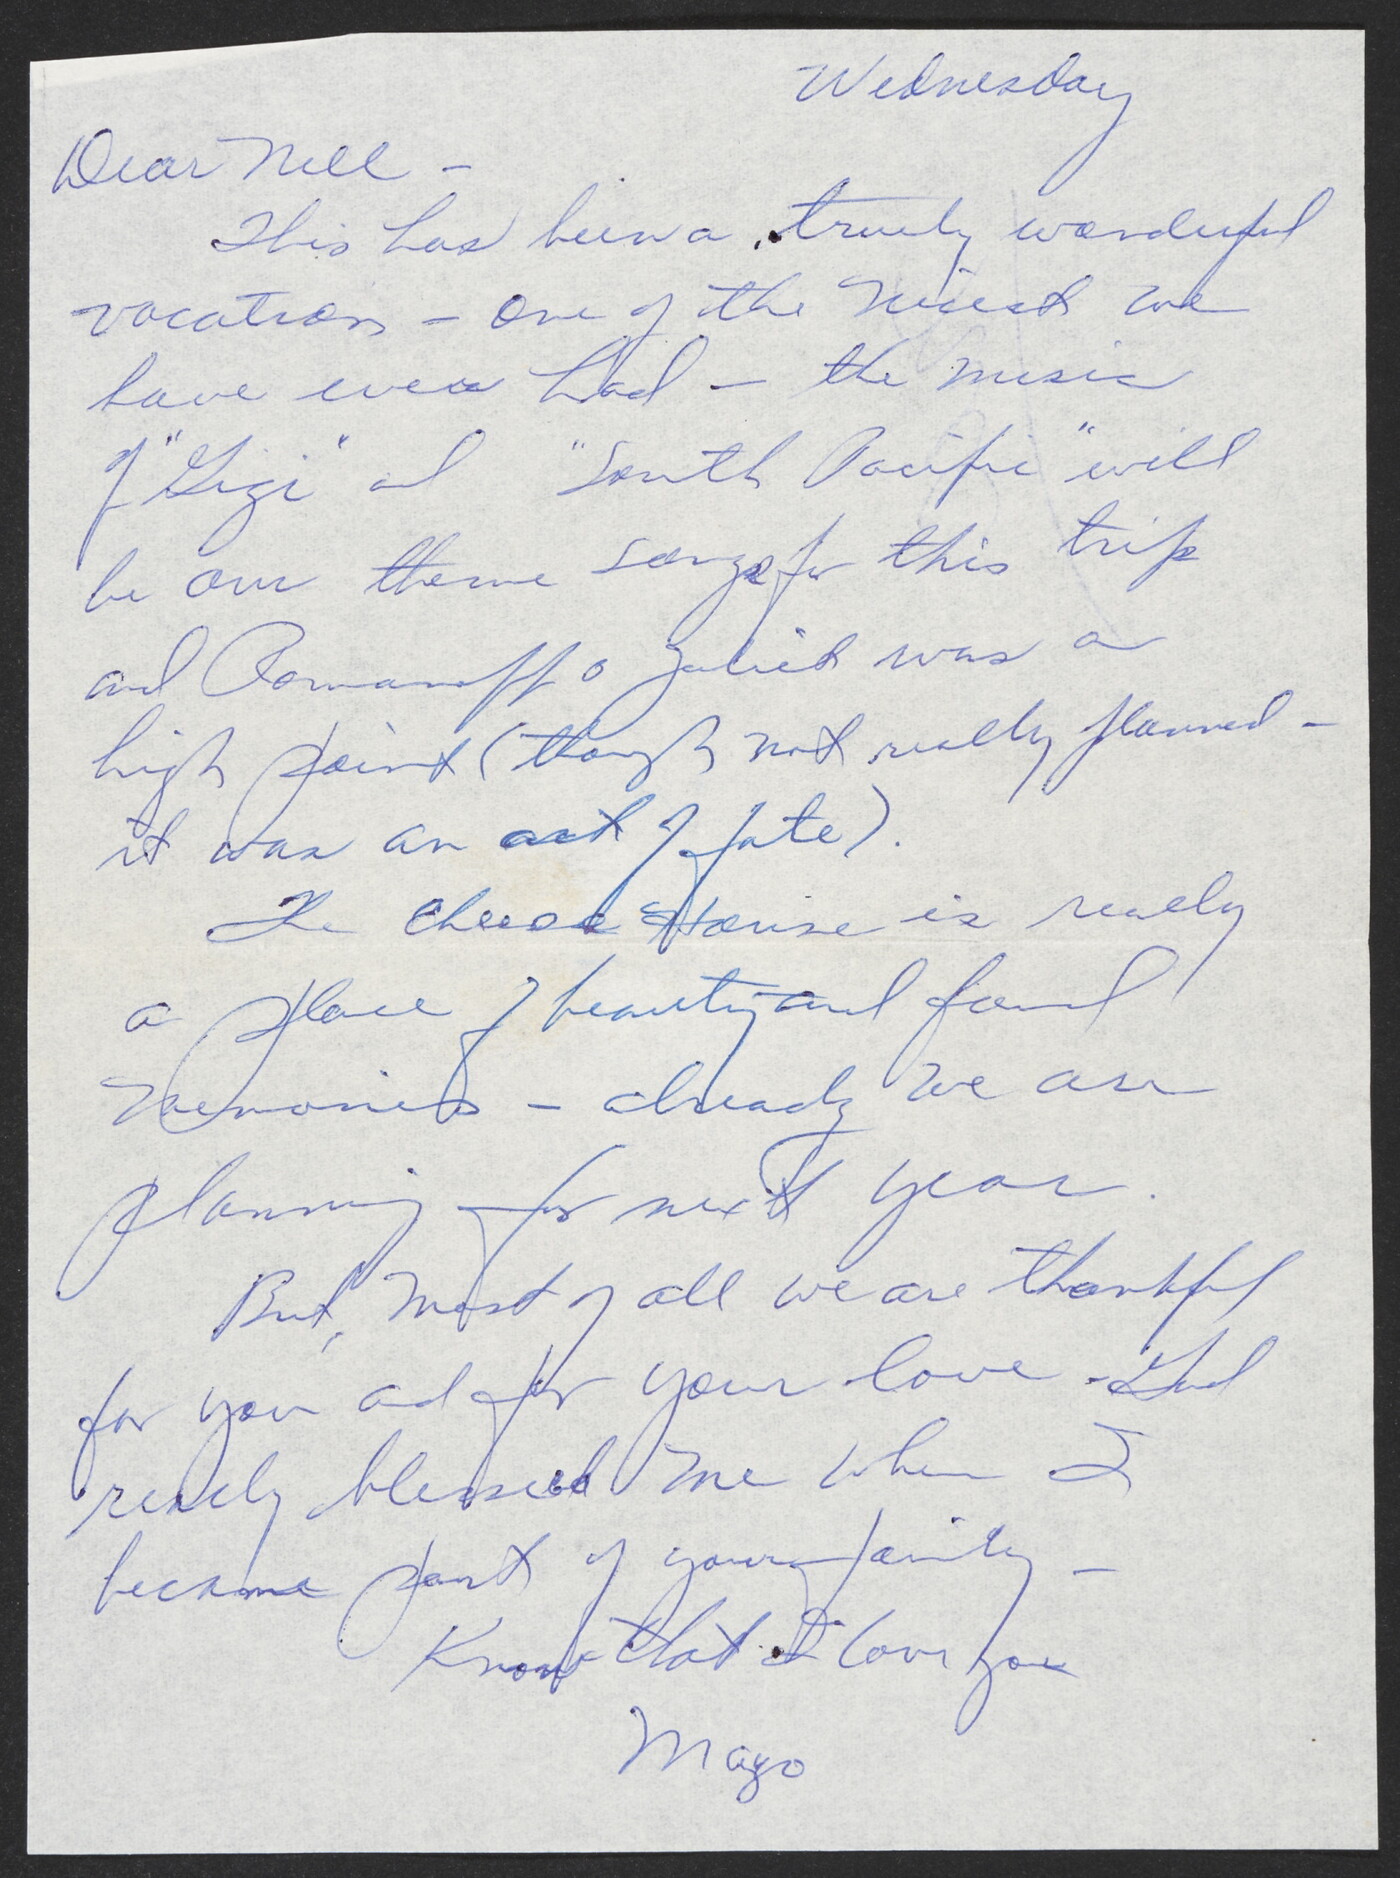 Wednesday
Dear Nell -
This has been a truely wonderful
vacation - one of the nicest we
have ever had - the music
of "Gigi" and "South Pacific" will
be our theme songs for this trip
and Romanoff o Juliet was a
high point (though not really planned -
it was an act of fate).
The Cheese House is really
a place of beauty and fond
memories - already we are
planning for next year.
But, most of all we are thankful
for you and for your love - God
really blessed me when I
became part of your family -
Know that I love you
Mayo